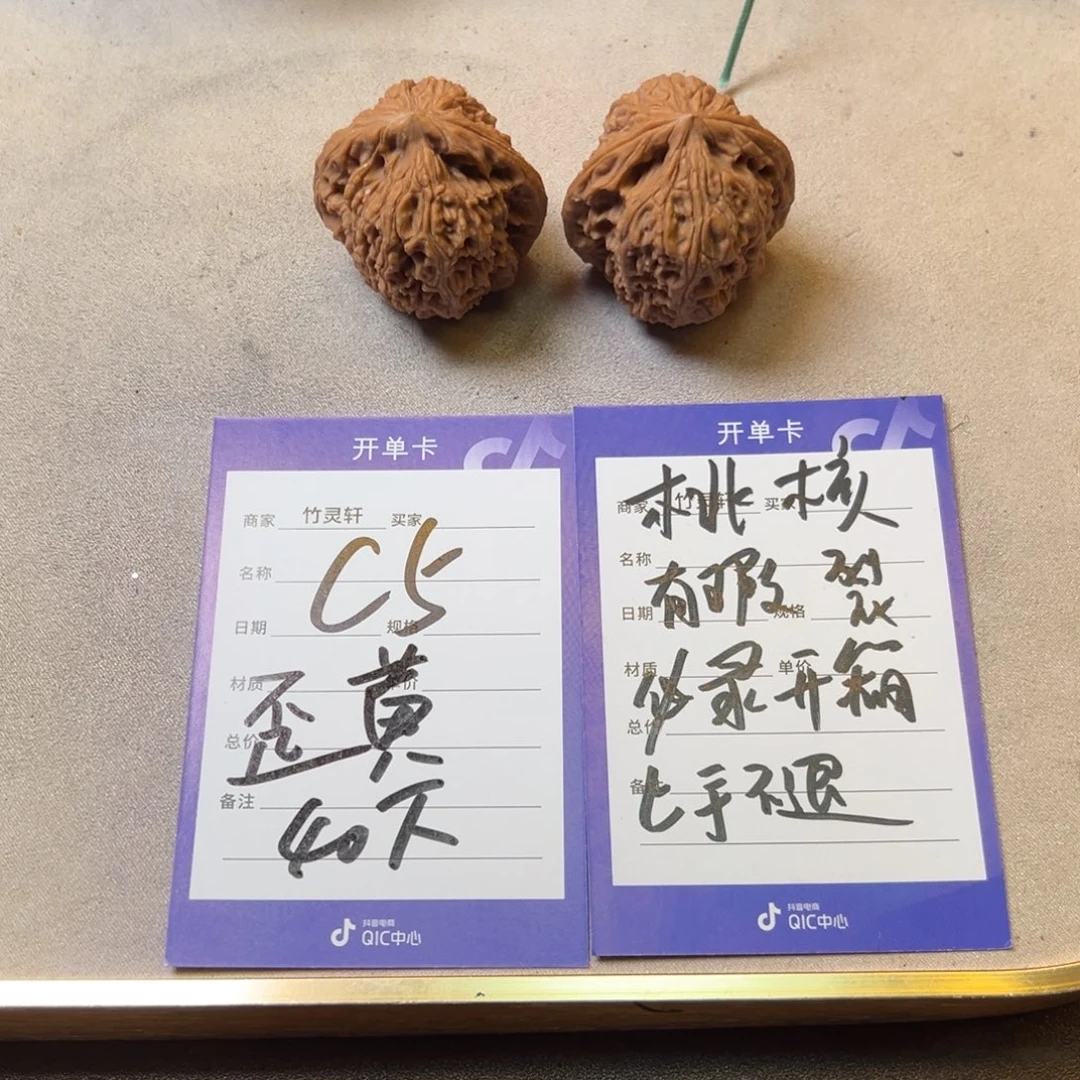 开单卡
商家 竹灵轩 买家
C5
名称
日期 规格
材质 单价
歪黄
总价
备注
40下
抖音电商
QIC中心
开单卡
桃核
商家 竹灵轩 买家
名称
有瑕 裂
日期 规格
材质 单价
必录开箱
总价
备注
上手不退
抖音电商
QIC中心